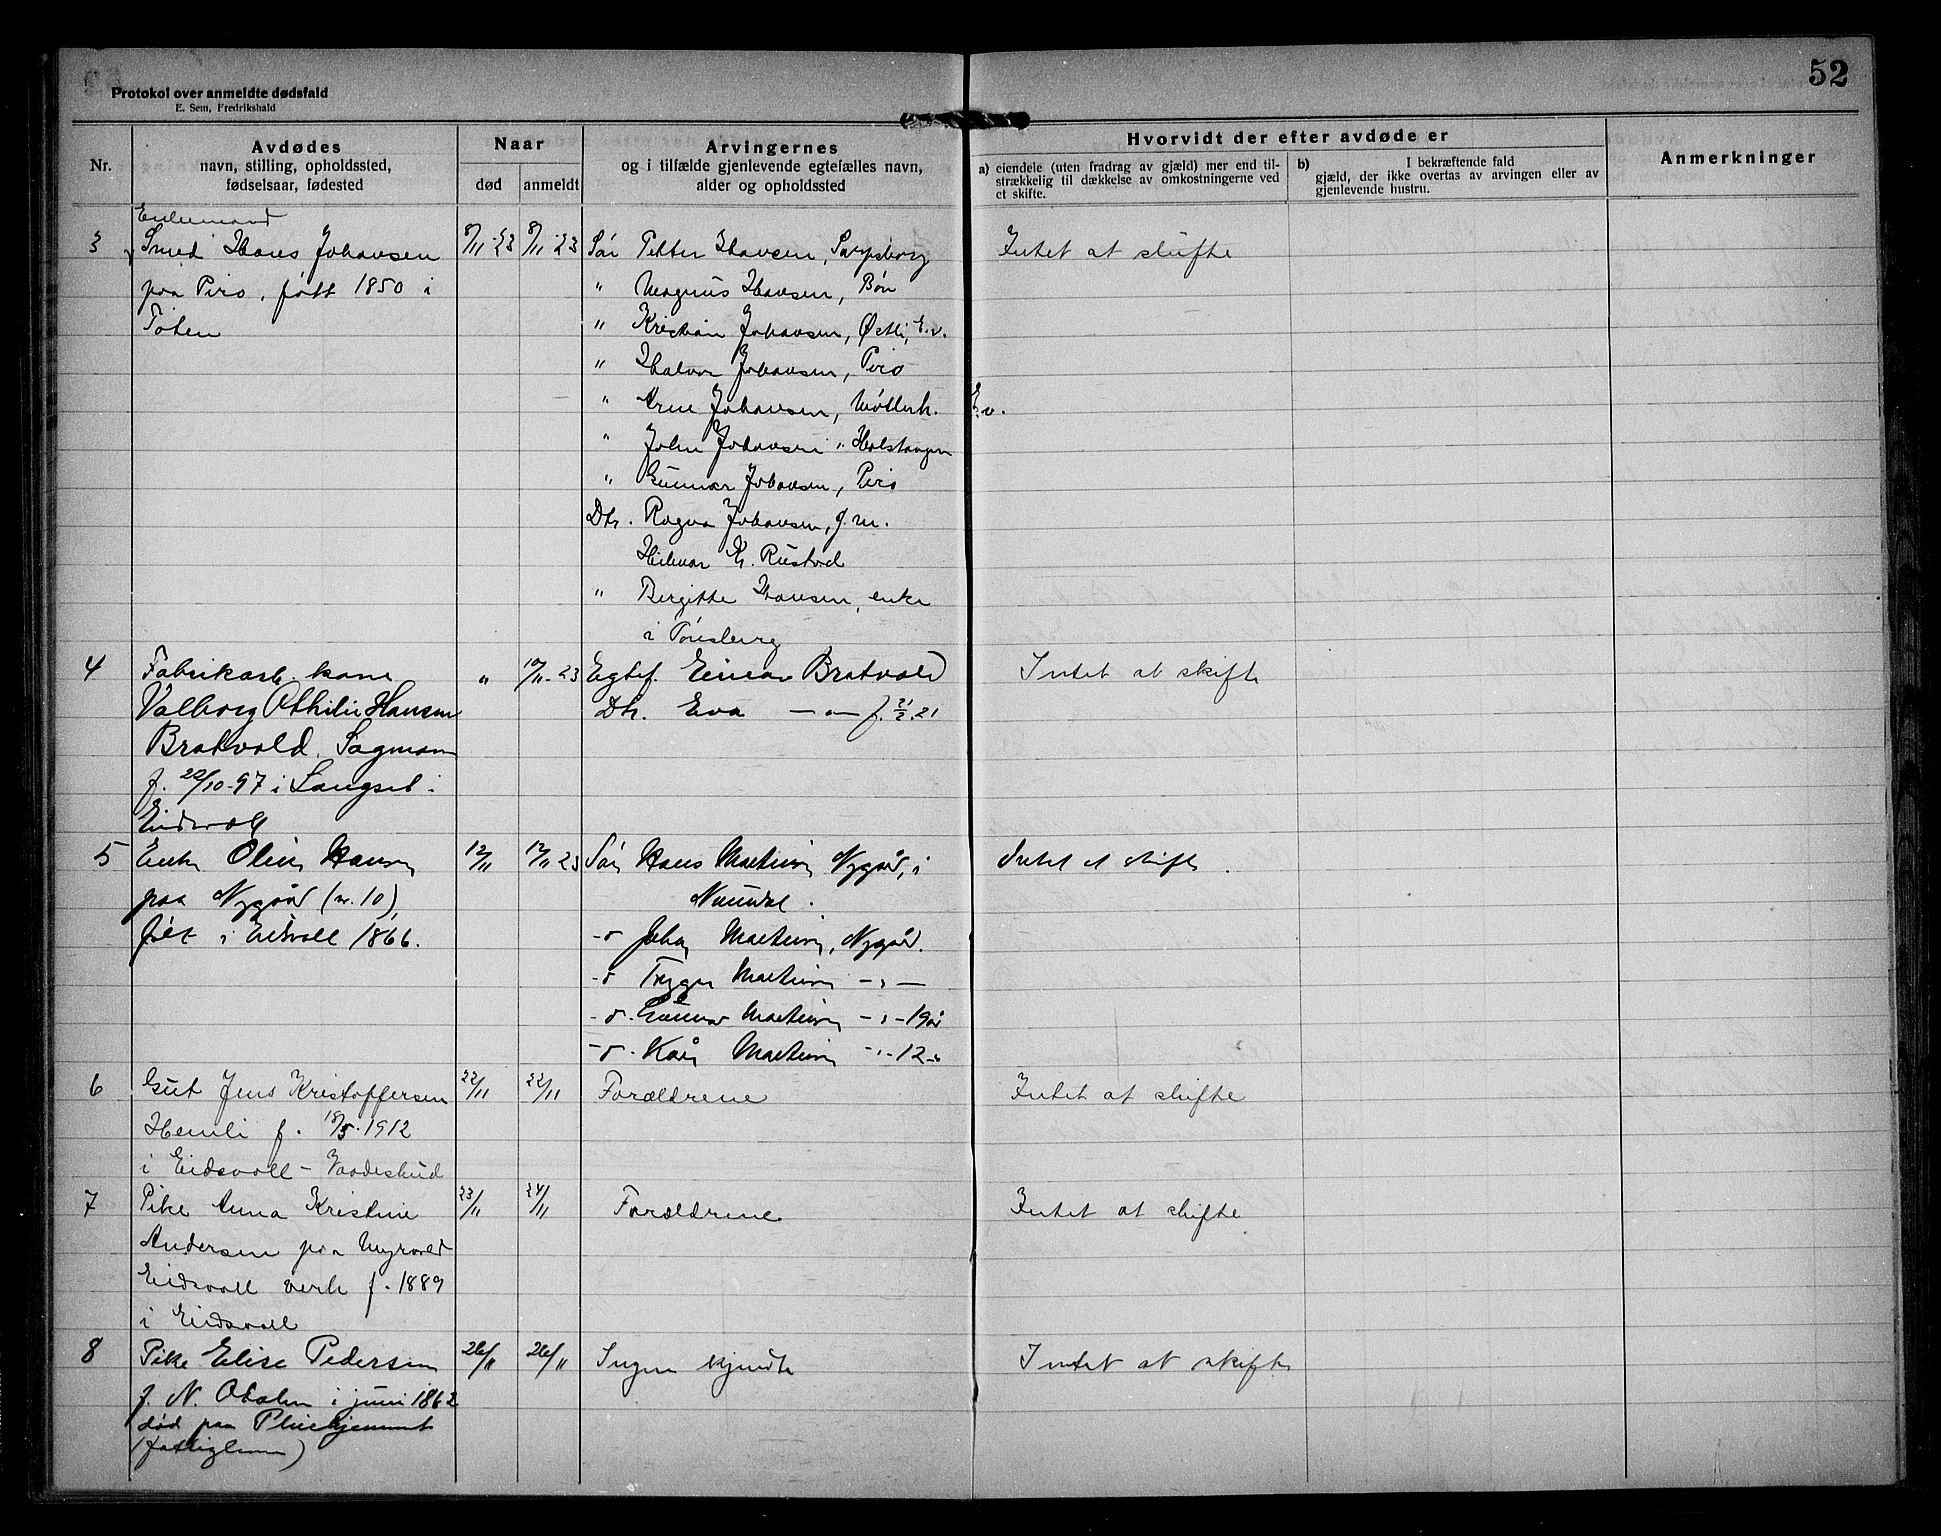 52
Protokol over anmeldte dødsfald
E. Sem, Fredrikshald
Nr.
Avdødes
navn, stilling, opholdssted,
fødselsaar, fødested
Naar
død
anmeldt
Arvingernes
og i tilfælde gjenlevende egtefælles navn,
alder og opholdssted
Hvorvidt der efter avdøde er
a) eiendele (uten fradrag av gjæld) mer end til-
strækkelig til dækkelse av omkostningerne ved
et skifte.
b) I bekræftende fald
gjæld, der ikke overtas av arvingen eller av
gjenlevende hustru.
Anmerkninger
Enkemand
3 Smed Hans Johansen 8/11-23 8/11-23 Søn Petter Hansen, Sarpsborg Intet at skifte
paa Piro, født 1850 i " Magnus Hansen, Bøn
Toten " Kristian Johansen, Østli, E.v.
" Halvor Johansen, Piro
" Arne Johansen, Møllerh. E.v.
" John Johansen " Holstangen
" Gunnar Johansen, Piro
Dtr. Ragna Johansen, g.m.
Hilmar K. Rustad
" Birgitte Hansen, enke
i Tønsberg
4 Fabrikarb. kone " 10/11-23 Egtef. Einar Bratvold Intet at skifte
Valborg Othilie Hansen Dtr. Eva —"— f. 21/2.21
Bratvold, Sagmoen
f. 22/10-97 i Langset i
Eidsvoll
5 Enke Oline Hansen 12/11 12/11 23 Søn Hans Martinsen Nygård, i Intet at skifte.
paa Nygård (nr. 10) Nannestad.
født i Eidsvoll 1866. -o- Johan Martinsen, Nygård.
-o- Trygve Martinsen -"-
-o- Gunnar Martinsen -"- 19 år
-o- Kåre Martinsen -"- 12 -"-
6 Gut Jens Kristoffersen 22/11 22/11 Forældrene Intet at skifte
Hemli f. 18/5-1912
i Eidsvoll - Vaadeskud
7 Pike Anna Kristine 23/11 24/11 Forældrene Intet at skifte
Andersen paa Myrvold
Eidsvoll verk f. 1889
i Eidsvoll
8 Pike Elise Pedersen 26/11 26/11 Ingen kjendte Intet at skifte
f. N. Odalen i juni 1862
død paa Pleiehjemmet
(fattiglem)